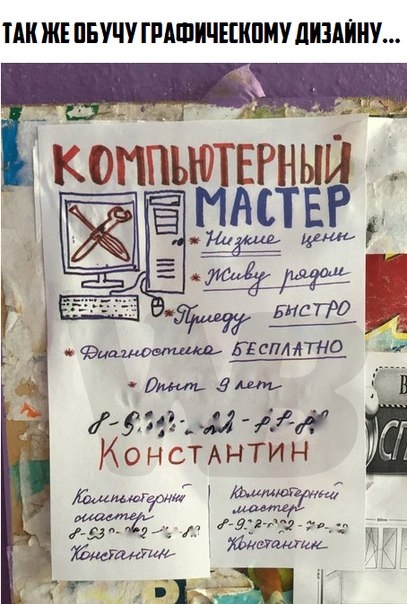 ТАК ЖЕ ОБУЧУ ГРАФИЧЕСКОМУ ДИЗАЙНУ...
КОМПЬЮТЕРНЫЙ
МАСТЕР
* Низкие цены
* Живу рядом
* Приеду БЫСТРО
* Диагностика БЕСПЛАТНО
* Опыт 9 лет
КОНСТАНТИН
Компьютерный
мастер
Константин
Компьютерный
мастер
Константин